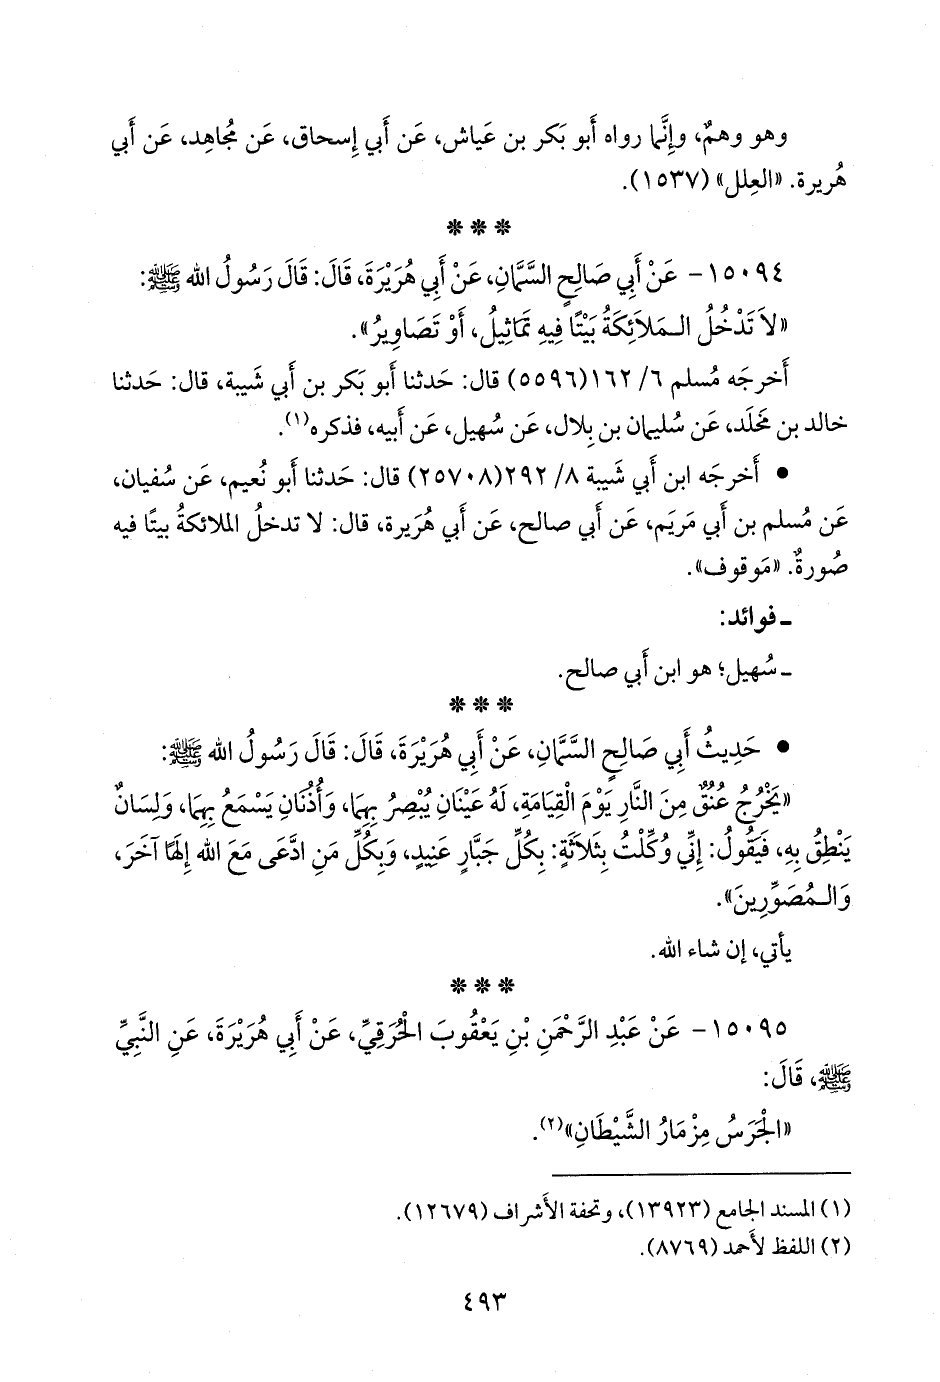 وهو وهمٌ، وإِنَّما رواه أَبو بَكر بن عَياش، عَن أَبي إِسحاق، عَن مُجاهِد، عَن أَبي
هُريرة. «العِلل» (١٥٣٧).
***
١٥٠٩٤- عَنْ أَبِي صَالِحٍ السَّمَّانِ، عَنْ أَبِي هُرَيْرَةَ، قَالَ: قَالَ رَسُولُ الله ﷺ:
«لاَ تَدْخُلُ الـمَلاَئِكَةُ بَيْتًا فِيهِ تَمَاثِيلُ، أَوْ تَصَاوِيرُ».
أَخرجَه مُسلم ٦/ ١٦٢(٥٥٩٦) قال: حَدثنا أَبو بَكر بن أَبي شَيبة، قال: حَدثنا
خالد بن مَخلَد، عَن سُليمان بن بِلال، عَن سُهيل، عَن أَبيه، فذكره(١).
● أَخرجَه ابن أَبي شَيبة ٨/ ٢٩٢(٢٥٧٠٨) قال: حَدثنا أَبو نُعيم، عَن سُفيان،
عَن مُسلم بن أَبي مَريَم، عَن أَبي صالح، عَن أَبي هُرَيرة، قال: لا تدخلُ الملائكةُ بيتًا فيه
صُورةٌ. «مَوقوف».
ـ فوائد:
ـ سُهيل؛ هو ابن أَبي صالح.
***
● حَدِيثُ أَبِي صَالِحٍ السَّمَّانِ، عَنْ أَبِي هُرَيْرَةَ، قَالَ: قَالَ رَسُولُ الله ﷺ:
«يَخْرُجُ عُنُقٌ مِنَ النَّارِ يَوْمَ الْقِيَامَةِ، لَهُ عَيْنَانِ يُبْصِرُ بِهِمَا، وَأُذُنَانِ يَسْمَعُ بِهِمَا، وَلِسَانٌ
يَنْطِقُ بِهِ، فَيَقُولُ: إِنِّي وُكِّلْتُ بِثَلاَثَةٍ: بِكُلِّ جَبَّارٍ عَنِيدٍ، وَبِكُلِّ مَنِ ادَّعَى مَعَ الله إِلَهًا آخَرَ،
وَالـمُصَوِّرِينَ».
يأتي، إن شاء الله.
***
١٥٠٩٥- عَنْ عَبْدِ الرَّحْمَنِ بْنِ يَعْقُوبَ الْحُرَقِيِّ، عَنْ أَبِي هُرَيْرَةَ، عَنِ النَّبِيِّ
ﷺ، قَالَ:
«الْجَرَسُ مِزْمَارُ الشَّيْطَانِ»(٢).
(١) المسند الجامع (١٣٩٢٣)، وتحفة الأَشراف (١٢٦٧٩).
(٢) اللفظ لأَحمد (٨٧٦٩).
٤٩٣